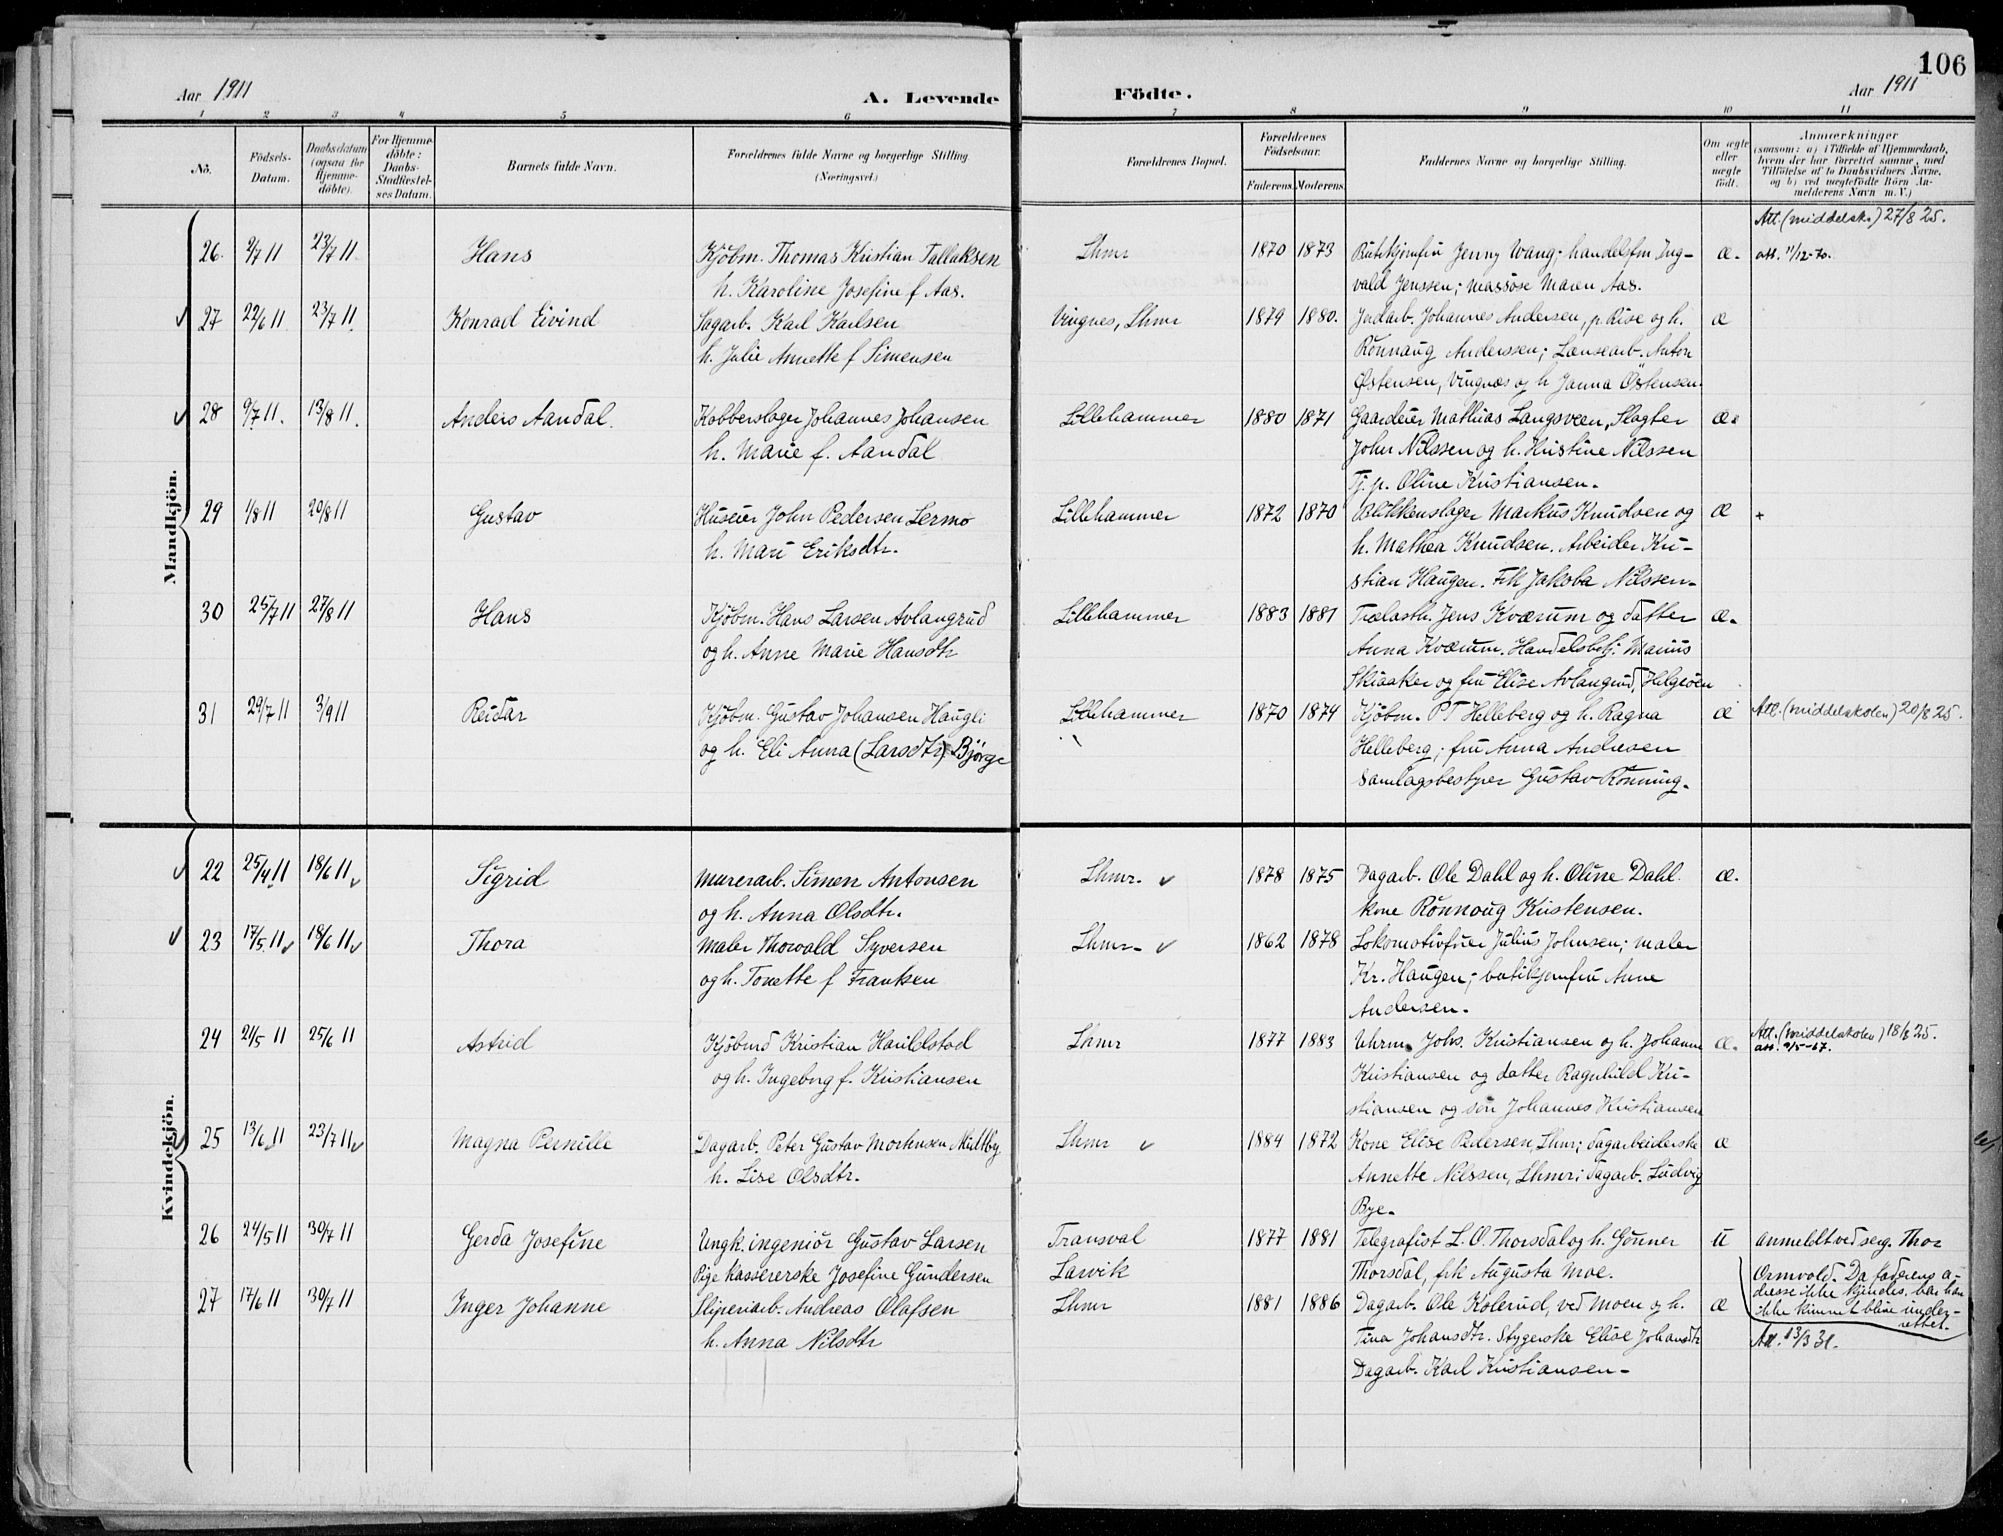 106
Aar 1911
A. Levende
Födte.
Aar 1911
1 2 3 4 5 6 7 8 9 10 11
No.
Födsels-Datum.
Daabsdatum (ogsaa for Hjemmedöbte).
For Hjemmedöbte: Daabs-Stadfæstelses Datum.
Barnets fulde Navn.
Forældrenes fulde Navne og borgerlige Stilling (Næringsvei.)
Forældrenes Bopæl.
Forældrenes Födselsaar.
Faderens. Moderens.
Faddernes Navne og borgerlige Stilling.
Om ægte eller uægte født.
Anmærkninger
(saasom: a) i Tilfælde af Hjemmedaab,
hvem der har forrettet samme, med
Tilföielse af to Daabsvidners Navne.
og b) ved uægtefödte Börn An-
melderens Navn m. V.)
Mandkjön.
Att. (middelsk.) 27/8 25.
26. 2/7 11 23/7 11 Hans Kjöbm. Thomas Kristian Tallaksen Lhmr 1870 1873 Butikjomfru Jenny Wang; handelsfm Ing- æ. att. 11/12-70.
h. Karoline Josefine f. Aas. vald Jenssen; massøse Maren Aas.
27 22/6 11 23/7 11 Konrad Eivind Sagarb. Karl Karlsen Vingnes, Lhmr 1879 1880. Jordarb. Johannes Andersen, p. Rise og h. æ
h. Julie Annette f Simensen Rönnaug Anderssen; Lænsearb. Anton
Østensen, Vingnæs og h Janna Östensen.
28 9/7 11. 13/8 11. Anders Aandal. Kobberslager Johannes Johansen Lillehammer 1880 1871 Gaardeier Mathias Langsveen, Slagter æ.
h. Marie f. Aandal John Nilssen og h. Kristine Nilssen
Tj. p. Oline Kristiansen.
29 1/8 11 20/8 11 Gustav Huseier John Pedersen Lermo Lillehammer 1872 1870 Blikkenslager Markus Knudsen og æ +
h. Mari Eriksdtr. h. Mathea Knudsen. Arbeider Kri-
stian Haugen. Frk Jakoba Nilssen-
30 25/7 11 27/8 11 Hans Kjøbm. Hans Larsen Avlangrud Lillehammer 1883 1881 Trælasth. Jens Kværum og datter æ.
og h. Anne Marie Hansdtr Anna Kværum. Handelsbetj. Marius
Skiaaker og fru Elise Avlangrud, Helgeöen
31 29/7 11 3/9 11 Reidar Kjøbm. Gustav Johansen Haugli Lillehammer 1870 1874 Kjøbm. P T Helleberg og h. Ragna æ Att. (middelskolen) 20/8 25.
og h. Eli Anna (Larsdtr) f. Bjørge Helleberg; fru Anna Andresen
Samlagsbestyrer Gustav Rönning.
Kvindekjön.
22 25/4 11 18/6 11 Sigrid Murerarb. Simen Antonsen Lhmr. 1878 1875 Dagarb. Ole Dahl og h. Oline Dahl. æ.
og h. Anna Olsdtr. kone Rönnoug Kristensen.
23 17/5 11 18/6 11 Thora Maler Thorvald Syversen Lhmr- 1862 1878 Lokomotivfører Julius Johnsen; maler
og h. Tonette f Frantsen Kr. Haugen; butikjomfru Anne
Andersen.
24 21/5 11 25/6 11 Astrid Kjöbmd Kristian Haribstad Lhmr 1877 1883 Uhrm. Johs. Kristiansen og h. Johanne æ. Att. (middelskolen) 18/8 25.
og h. Ingeborg f. Kristiansen Kristiansen og datter Ragnhild Kri-
stiansen og sön Johannes Kristiansen
25 13/6 11 23/7 11 Magna Pernille Dagarb. Peter Gustav Mortensen Multby Lhmr 1884 1872 Kone Elise Pedersen, Lhmr; dagarbeiderske æ
h. Lise Olsdtr. Annette Nilssen, Lhmr; dagarb. Ludvig
Bye.
26 24/5 11 30/7 11 Gerda Josefine Ungk. ingeniör Gustav Larsen Transval 1877 1881 Telegrafist L. O. Thorsdal og h. Gunner u anmeldt ved serg. Thor
Pige Kassererske Josefine Gundersen Larvik Thorsdal, frk Augusta Moe. Ormvold. Da faderens a-
dresse ikke kjendes, har han
ikke kunnet blive under-
rettet.
27 17/6 11 30/7 11 Inger Johanne Sliperiarb. Andreas Olafsen Lhmr 1881 1886 Dagarb. Ole Kolerud, ved Moen og h. æ
h. Anna Nilsdtr Tina Johansdtr. Strygerske Elise Johansdtr Att. 13/3 31.
Dagarb. Karl Kristiansen-